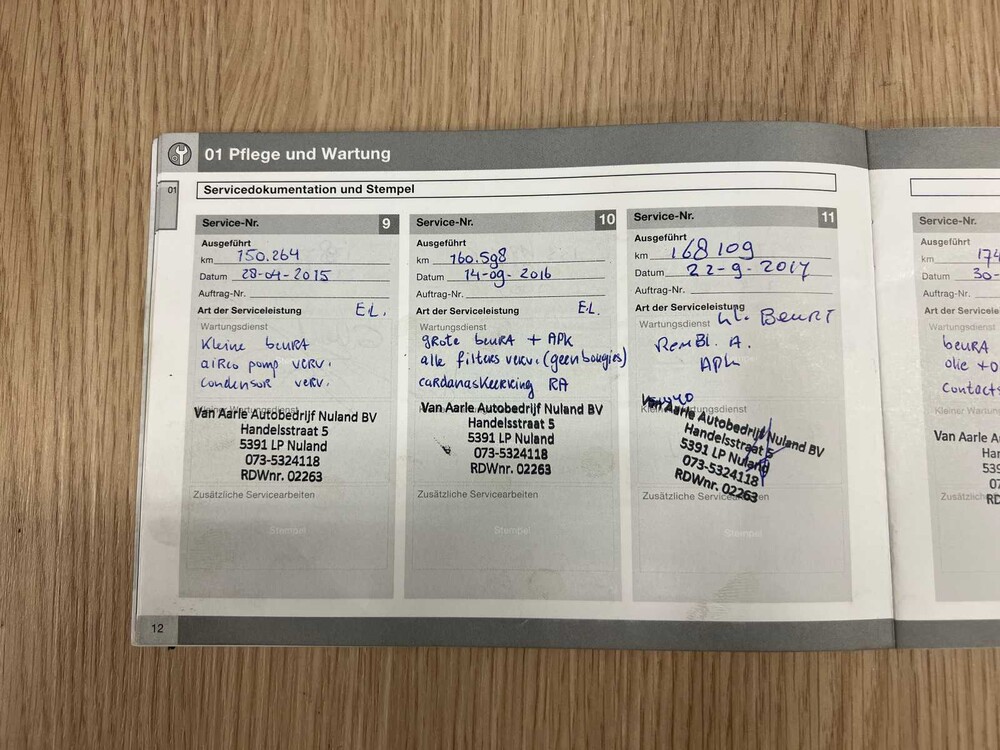 01 Pflege und Wartung
01
Servicedokumentation und Stempel
Service-Nr. 9
Ausgeführt
km 150.264
Datum 28-04-2015
Auftrag-Nr.
Art der Serviceleistung E.L.
Wartungsdienst
Kleine beurt
airco pomp verv.
condensor verv.
Kleiner Wartungsdienst
Van Aarle Autobedrijf Nuland BV
Handelsstraat 5
5391 LP Nuland
073-5324118
RDWnr. 02263
Zusätzliche Servicearbeiten
Stempel
Service-Nr. 10
Ausgeführt
km 160.598
Datum 14-09-2016
Auftrag-Nr.
Art der Serviceleistung E.L.
Wartungsdienst
grote beurt + APK
alle filters verv. (geen bougies)
cardanaskeerring RA
Van Aarle Autobedrijf Nuland BV
Handelsstraat 5
5391 LP Nuland
073-5324118
RDWnr. 02263
Zusätzliche Servicearbeiten
Stempel
Service-Nr. 11
Ausgeführt
km 168109
Datum 22-9-2017
Auftrag-Nr.
Art der Serviceleistung
Wartungsdienst Kl. Beurt
RemBl. A.
APK
Van Aarle Autobedrijf Nuland BV
Handelsstraat 5
5391 LP Nuland
073-5324118
RDWnr. 02263
Zusätzliche Servicearbeiten
Stempel
Service-Nr.
Ausgeführt
km 174
Datum 30-
Auftrag-Nr.
Art der Service
Wartungsdienst
beurt
olie + o
contact
Kleiner Wartung
Van Aarle A
Han
539
07
RD
Zusätzlich
12